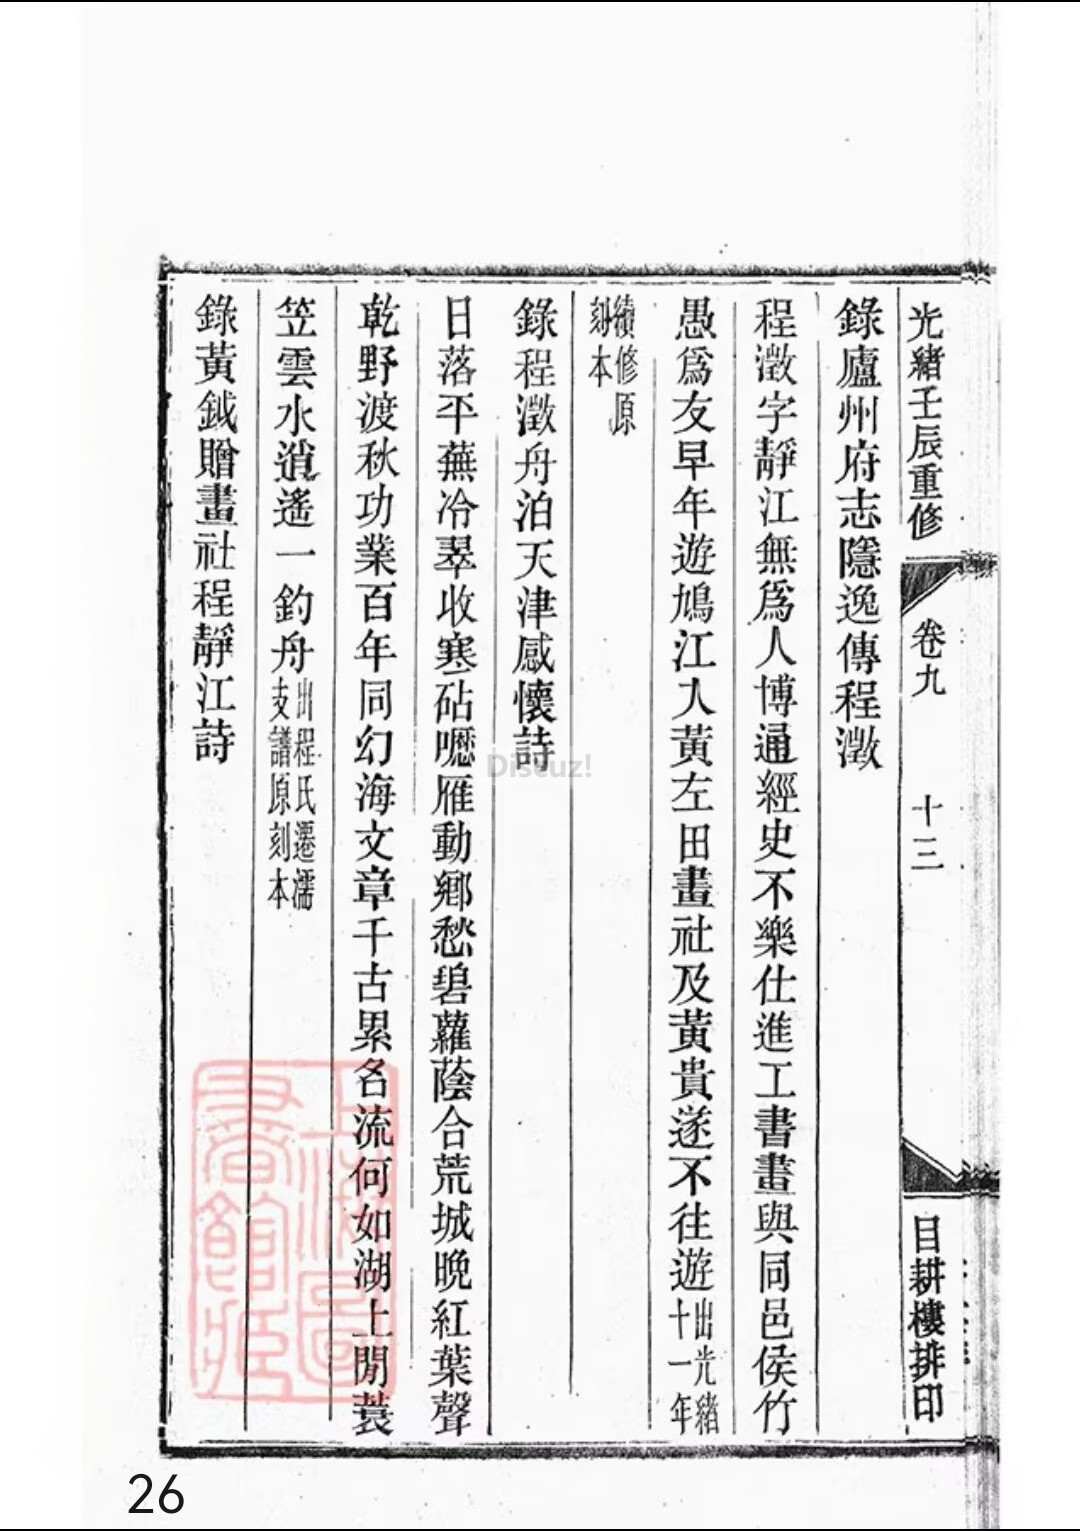 光緒壬辰重修 卷九 十三 目耕樓排印
錄廬州府志隱逸傳程澂
程澂字靜江無爲人博通經史不樂仕進工書畫與同邑侯竹
愚爲友早年遊鳩江入黃左田畫社及黃貴遂不往遊出光緒十一年
續修原刻本
錄程澂舟泊天津感懷詩
日落平蕪冷翠收寒砧嚦雁動鄉愁碧蘿蔭合荒城晚紅葉聲
乾野渡秋功業百年同幻海文章千古累名流何如湖上閒蓑
笠雲水逍遙一釣舟出程氏遷濡支譜原刻本
錄黃鉞贈畫社程靜江詩
上海圖書館藏
Discuz!
26